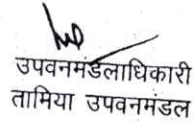 उपवनमंडलाधिकारी
तामिया उपवनमंडल